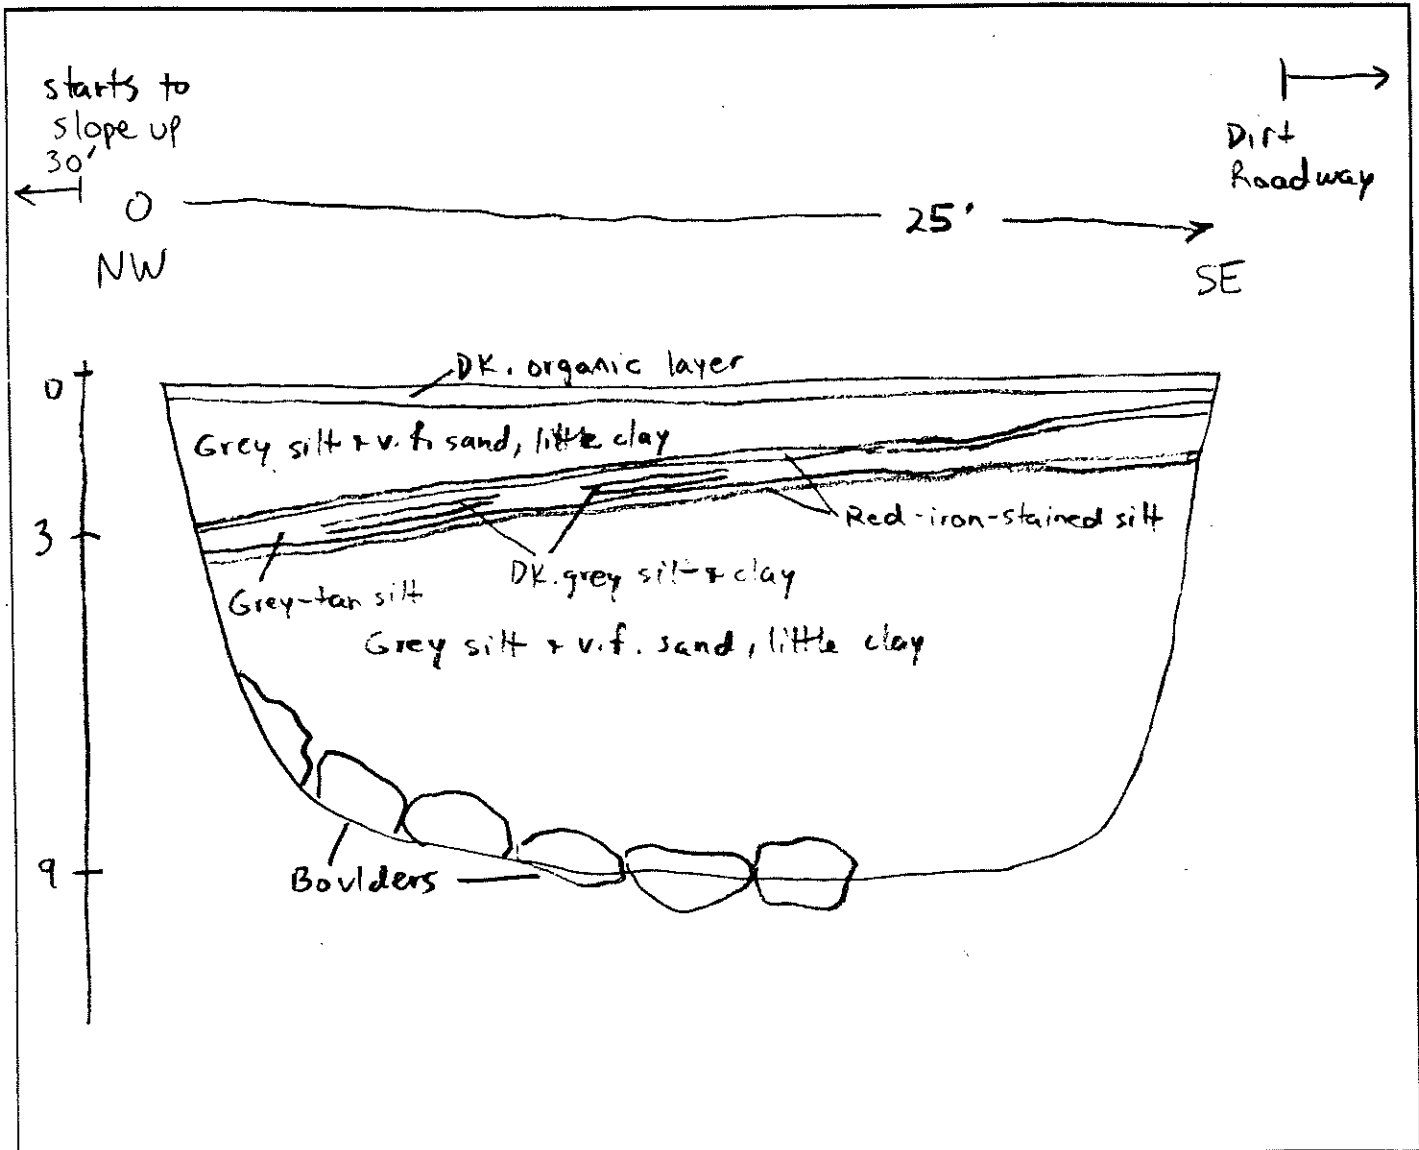 starts to
slope up
30'
Dirt
Roadway
0
25'
NW
SE
0
3
9
DK. organic layer
Grey silt + v.f. sand, little clay
Red-iron-stained silt
DK. grey silt + clay
Grey-tan silt
Grey silt + v.f. sand, little clay
Boulders